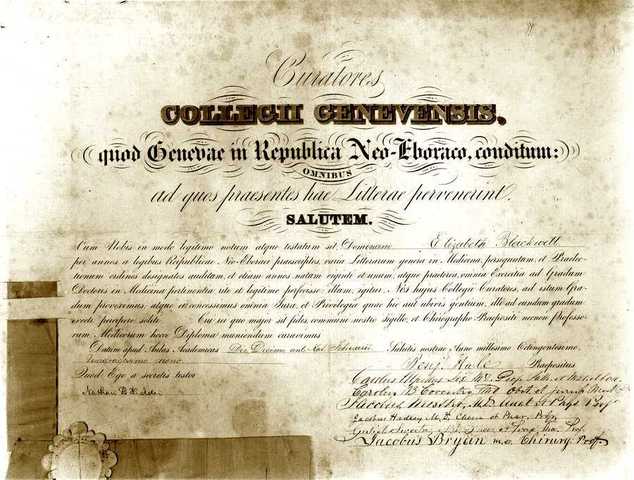 Curatores
COLLEGII GENEVENSIS,
(quod Genevae in Republica Neo-Eboraco, conditum:)
OMNIBUS
ad quos praesentes hae Litterae pervenerint,
SALUTEM.
Cum Nobis in modo legitimo notum atque testatum sit Dominam Elizabeth Blackwell
per annos a legibus Reipublicae Neo-Eboraci praescriptos, varia Litterarum genera in Medicina, persequutam, et Praelec-
tionum ordines designatas auditam, et etiam annos natam viginti et unum, atque praeterea omnia Exercitia ad Gradum
Doctoris in Medicina pertinentia rite et legitime perfecisse illam, igitur, Nos hujus Collegii Curatores, ad istum Gra-
dum proveximus, atque ei concessimus omnia Jura, et Privilegia quae hic aut ubivis gentium, illi ad eundem gradum
evecti percipere soliti. Cui in quo major sit fides, communi nostro sigillo, et Chirographo Praesidis necnon Professo-
rum Medicorum hocce Diploma muniendum curavimus.
Datum apud Aulas Academicas Salutis nostrae Anno millesimo Octingentesimo,
nono.
Quod Ego a secretis testor Benj. Hale Praeses
Jacobus Hadley M.D. Chem. et Phar. Prof.
Jacobus Bryan M.D. Chirurg. Prof.